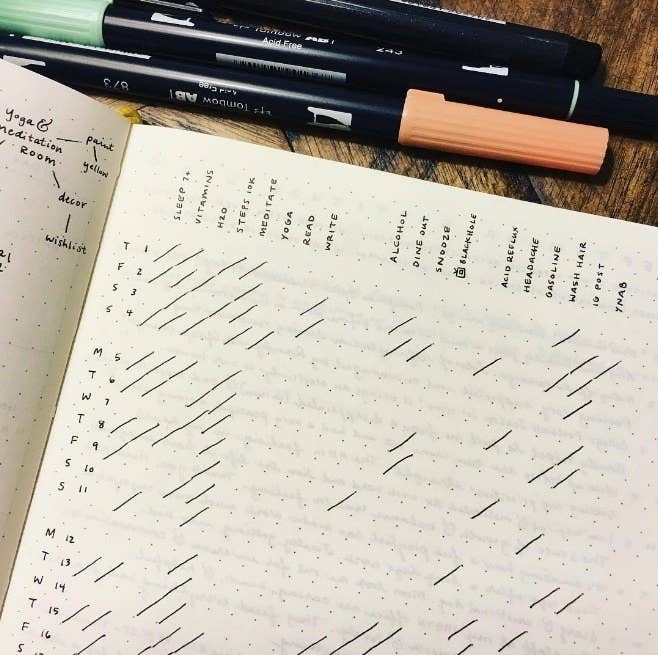 Tombow ABT
Acid Free
243
873
Tombow ABT
Acid Free
yoga &
meditation
ROOM
paint
yellow
decor
wishlist
SLEEP 7+
VITAMINS
H2O
STEPS 10K
MEDITATE
YOGA
READ
WRITE
ALCOHOL
DINE OUT
SNOOZE
BLACKHOLE
ACID REFLUX
HEADACHE
GASOLINE
WASH HAIR
IG POST
YNAB
T 1
F 2
S 3
S 4
M 5
T 6
W 7
T 8
F 9
S 10
S 11
M 12
T 13
W 14
T 15
F 16